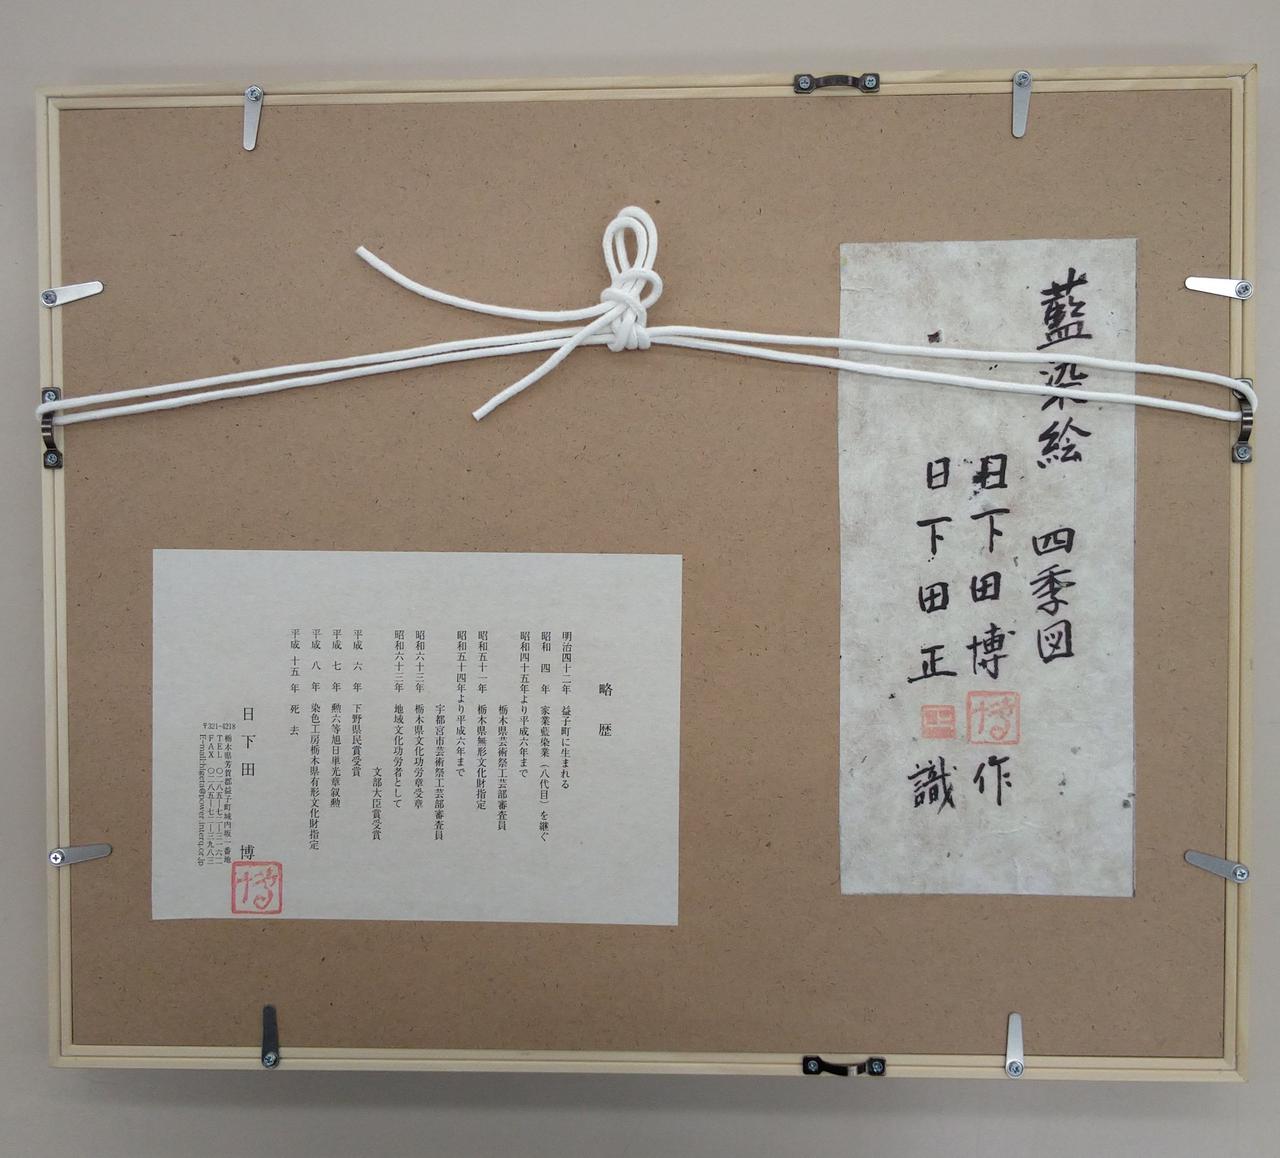 藍染絵 四季図
日下田博 作
日下田正 識
略歴
明治四十二年 益子町に生まれる
昭和 四 年 家業藍染業(八代目)を継ぐ
昭和四十五年より平成六年まで
栃木県芸術祭工芸部審査員
昭和五十一年 栃木県無形文化財指定
昭和五十四年より平成六年まで
宇都宮市芸術祭工芸部審査員
昭和六十三年 栃木県文化功労章受章
昭和六十三年 地域文化功労者として
文部大臣賞受賞
平成 六 年 下野県民賞受賞
平成 七 年 勲六等旭日単光章叙勲
平成 八 年 染色工房栃木県有形文化財指定
平成 十五 年 死 去
日下田 博
栃木県芳賀郡益子町城内坂一番地
〒321-4218 TEL 〇二八五―七二―三一六二
FAX 〇二八五―七二―三九八三
E-mail:higeta@power.interq.or.jp